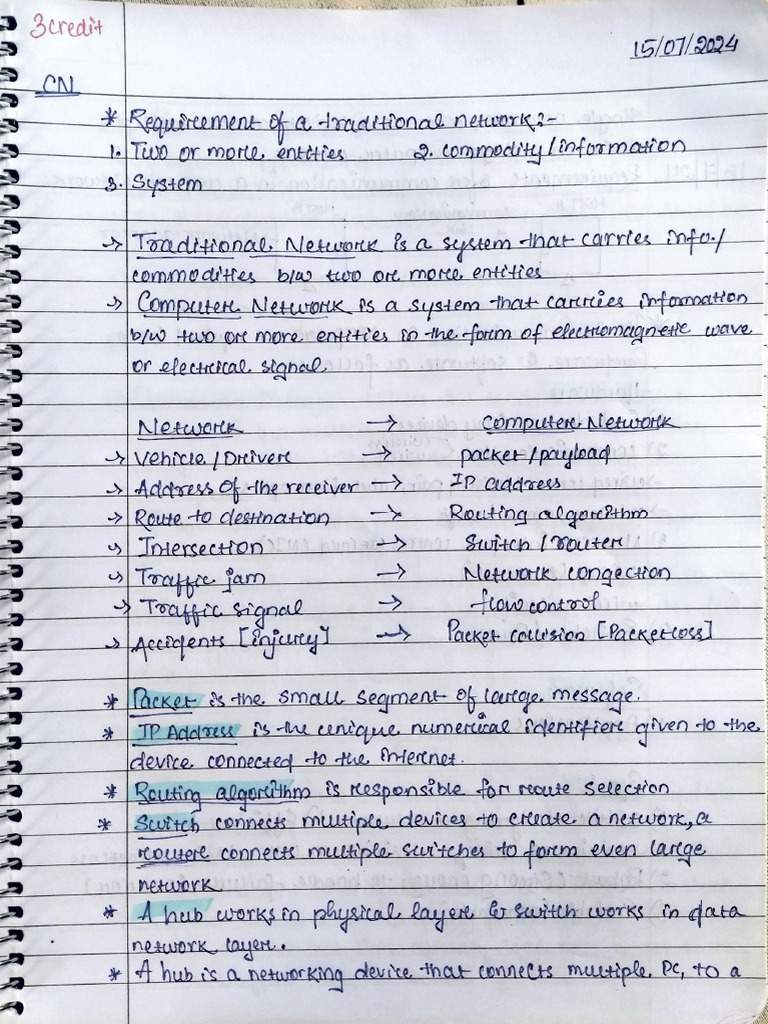 3credit
15/07/2024
CN
* Requirement of a traditional network:-
1. Two or more entities 2. commodity/information
3. System
→ Traditional Network is a system that carries info./
commodities b/w two or more entities
→ Computer Network is a system that carries information
b/w two or more entities in the form of electromagnetic wave
or electrical signal.
Network → Computer Network
→ Vehicle/Driver → packet/payload
→ Address Of the receiver → IP address
→ Route to destination → Routing algorithm
→ Intersection → Switch/router
→ Traffic jam → Network congection
→ Traffic signal → flow control
→ Accidents [injury] → Packet collision [Packetloss]
* Packet is the small segment of large message.
* IP Address is the unique numerical identifier given to the
device connected to the internet.
* Routing algorithm is responsible for route selection
* Switch connects multiple devices to create a network, a
router connects multiple switches to form even large
network.
* A hub works in physical layer & switch works in data
network layer.
* A hub is a networking device that connects multiple PC, to a